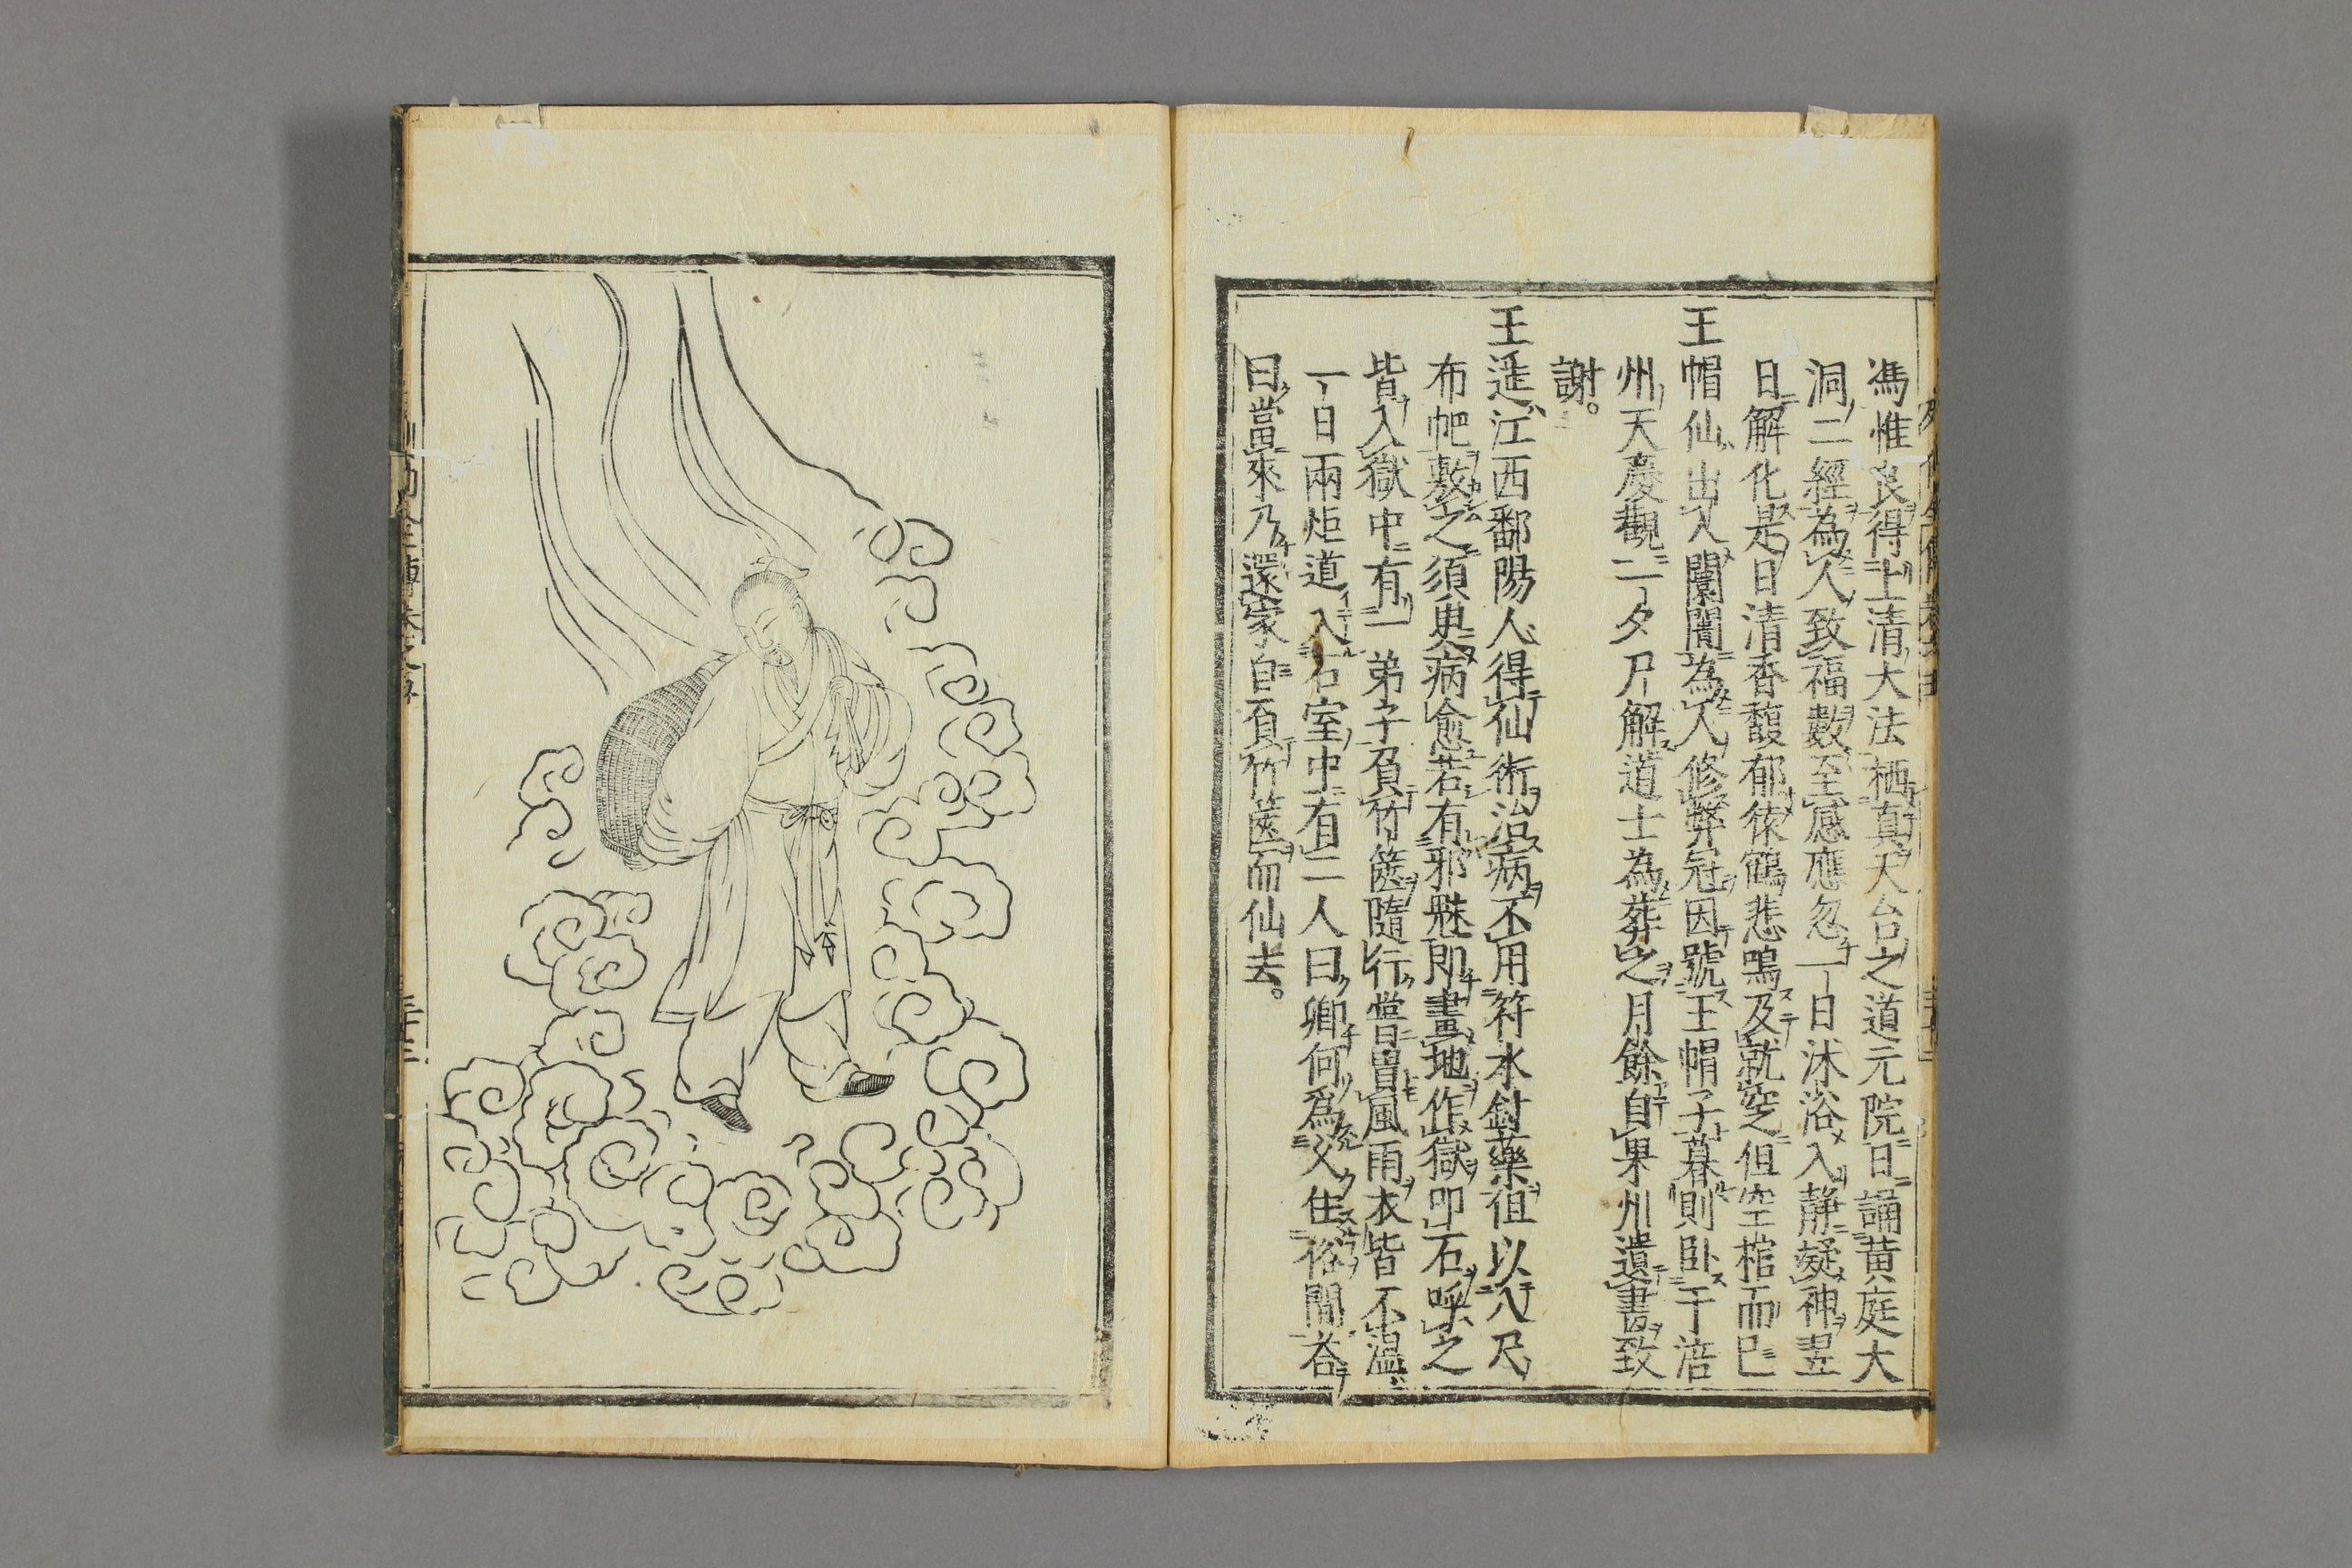 馮惟良得上清大法栖真天台之道元院日誦黄庭大
洞二經為人致福數至感應忽一日沐浴入靜凝神翌
日解化是日清香馥郁猿鶴悲鳴及就窆但空棺而已
王帽仙出入闤闠為人修弊冠因號王帽子暮則卧于涪
州天慶觀一夕尸解道士為葬之月餘自果州遺書致
謝。
王遥江西鄱陽人得仙術治病不用符水針藥但以八尺
布帊敷之須臾病愈若有邪魅即畫地作獄叩石呼之
皆入獄中有一弟子負竹篋隨行嘗冒風雨衣皆不濕
一日兩炬道入石室中有二人曰卿何爲久住俗間答
曰當來乃還家自負竹篋而仙去。